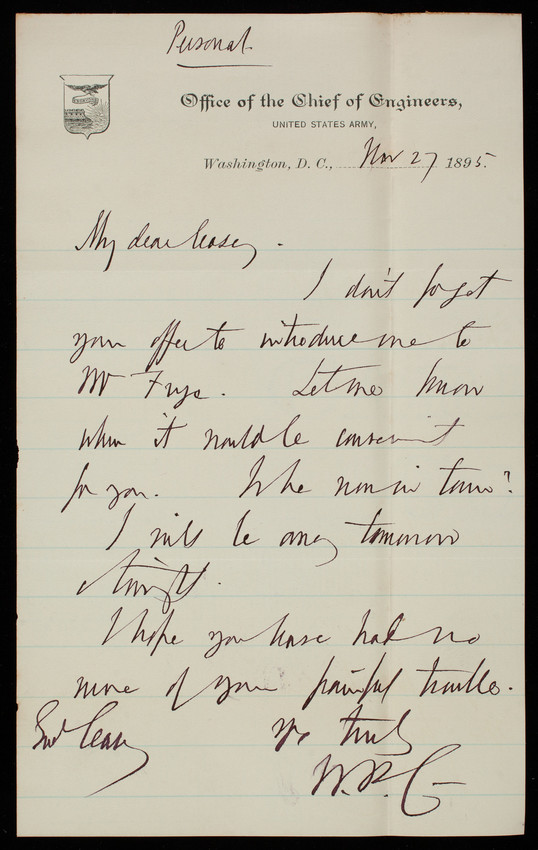 Personal
Office of the Chief of Engineers,
UNITED STATES ARMY,
Washington, D. C., Nov 27 1895.
My dear Casey.
I don't forget
your offer to introduce me to
Mr Frye. Let me know
when it would be convenient
for you. Is he now in town?
I will be away tomorrow
night.
I hope you have had no
more of your painful trouble.
Yrs truly
W.P.C.
Casey